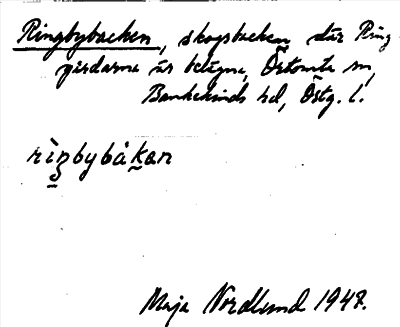 Ringbybacken, skogsbacken där Ring
gårdarna är belägna, Örtomta sn,
Bankekinds hd, Östg. l.
rìŋbybàkan
Maja Nordlund 1948.